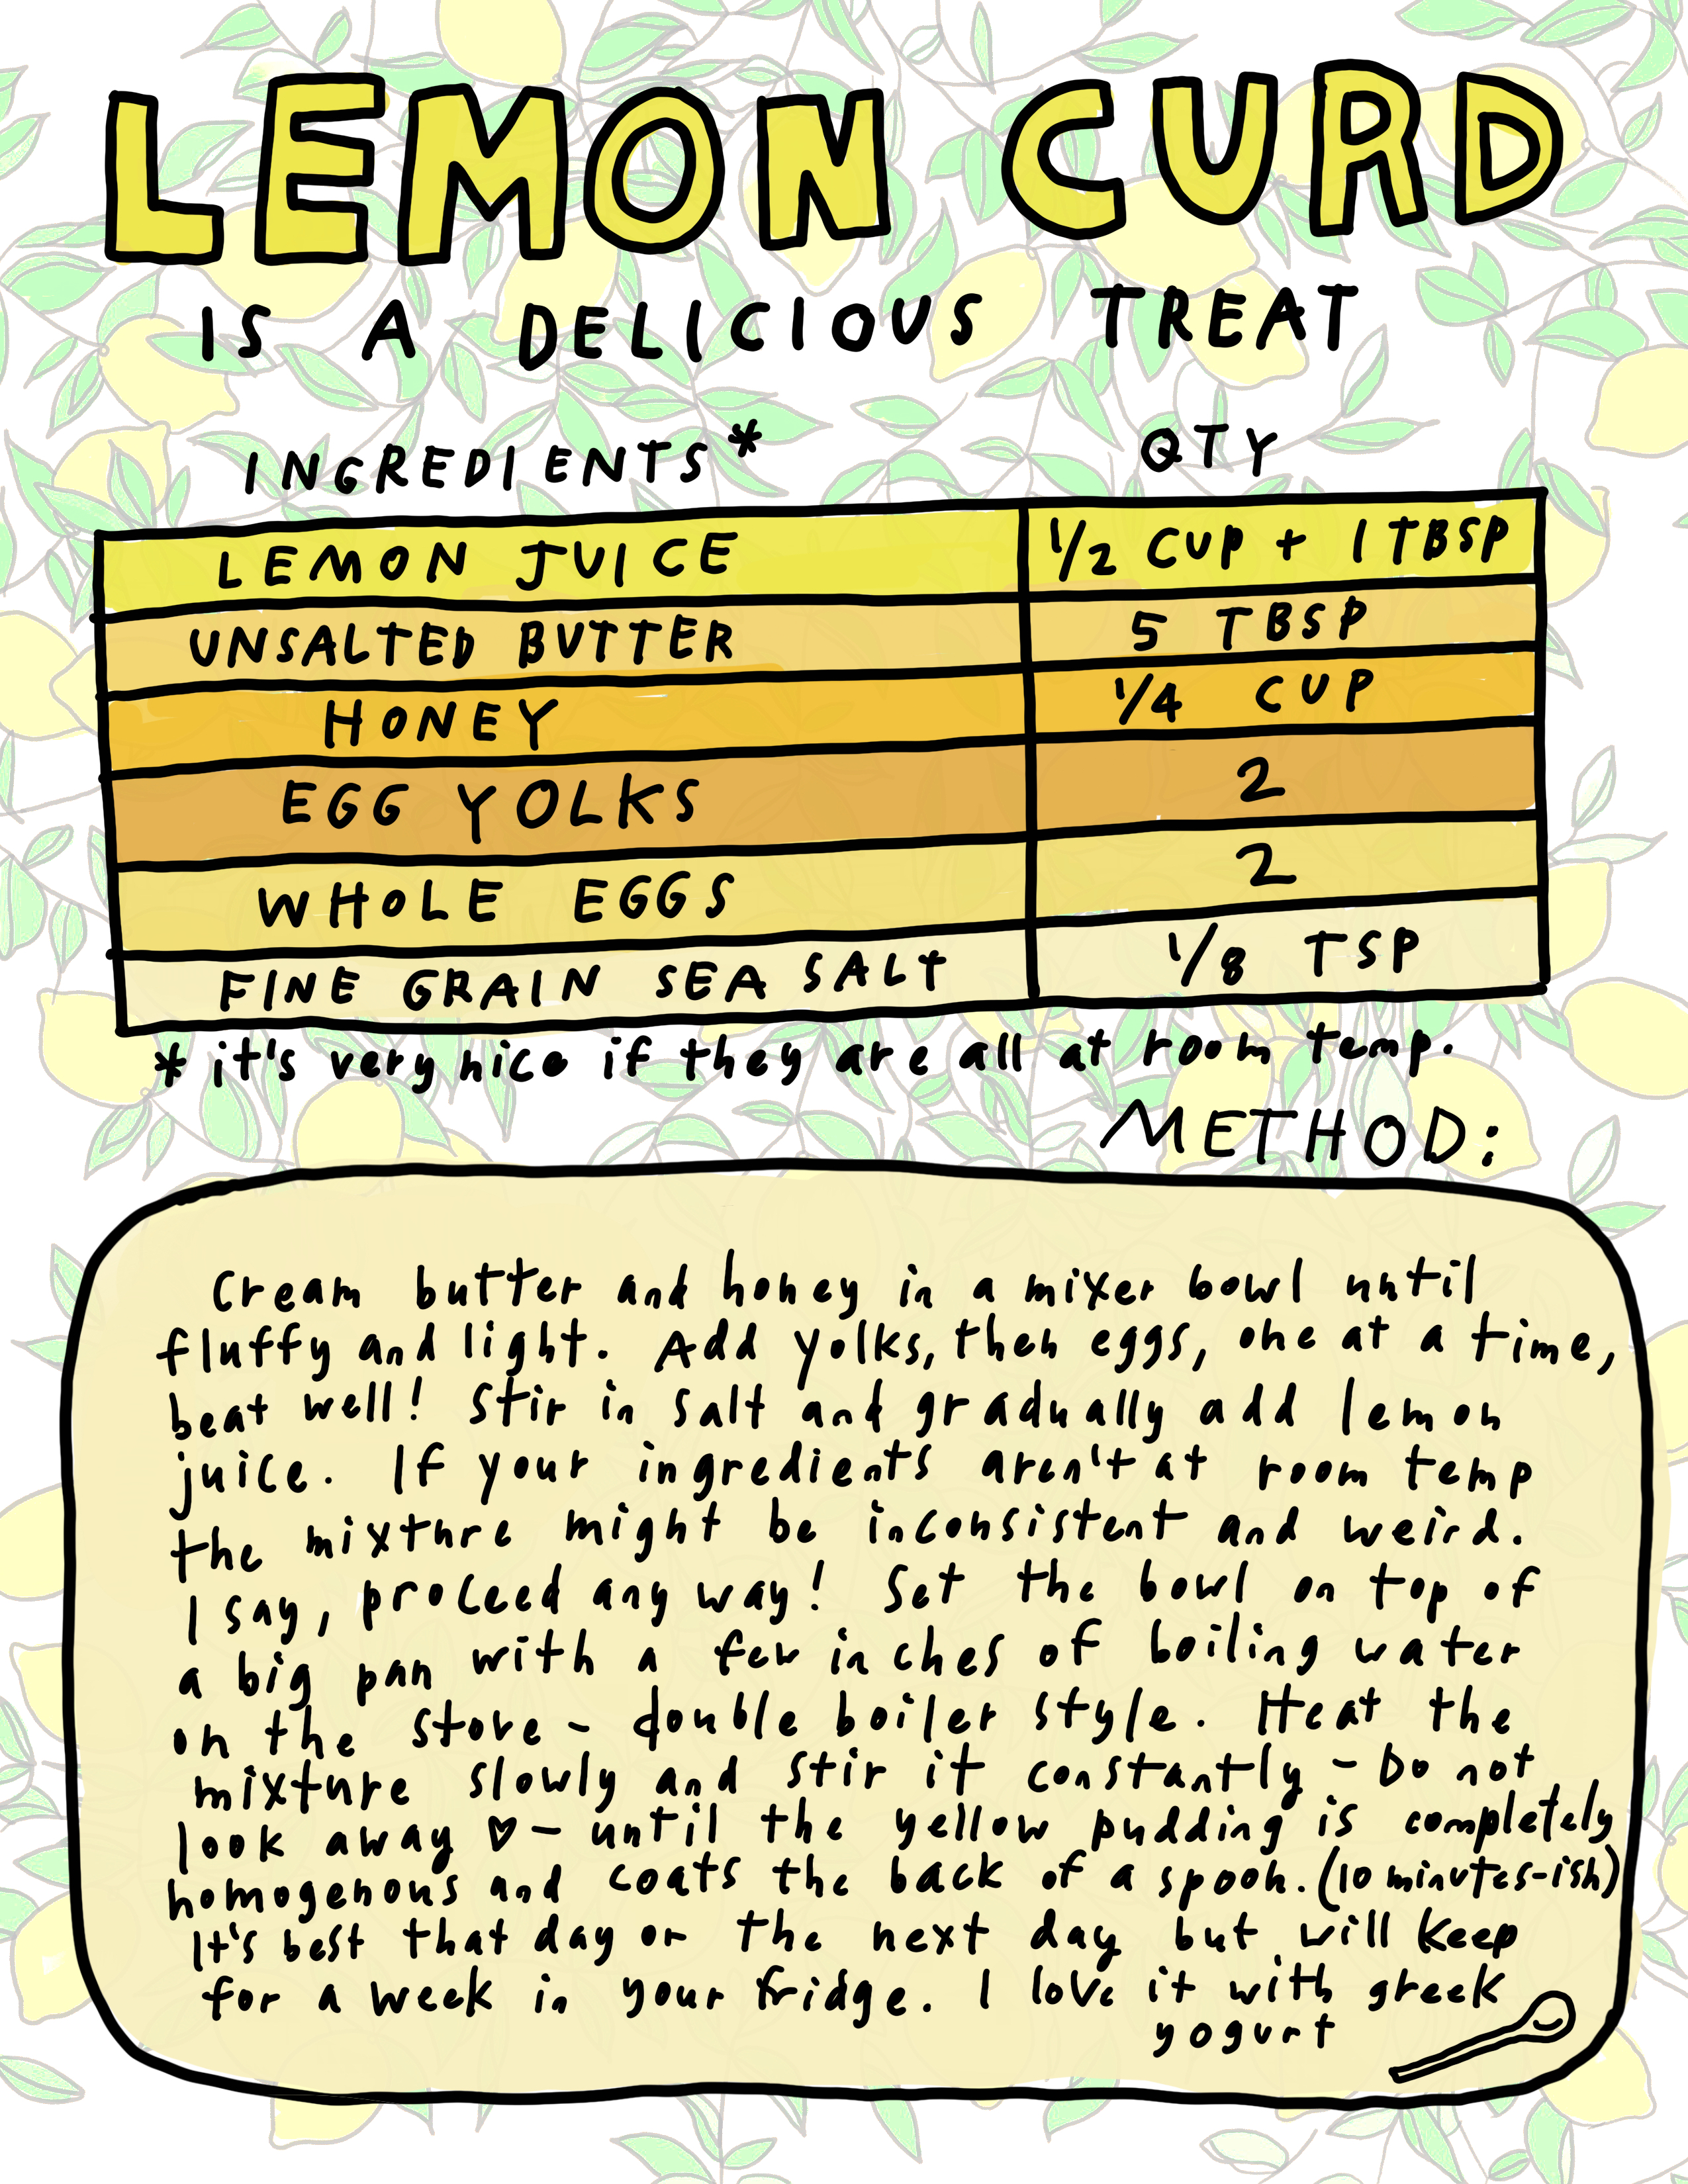 LEMON CURD
IS A DELICIOUS TREAT
INGREDIENTS* QTY
LEMON JUICE 1/2 CUP + 1 TBSP
UNSALTED BUTTER 5 TBSP
HONEY 1/4 CUP
EGG YOLKS 2
WHOLE EGGS 2
FINE GRAIN SEA SALT 1/8 TSP
* it's very nice if they are all at room temp.
METHOD:
Cream butter and honey in a mixer bowl until
fluffy and light. Add yolks, then eggs, one at a time,
beat well! Stir in salt and gradually add lemon
juice. If your ingredients aren't at room temp
the mixture might be inconsistent and weird.
I say, proceed any way! Set the bowl on top of
a big pan with a few inches of boiling water
on the stove - double boiler style. Heat the
mixture slowly and stir it constantly - Do not
look away ♡ - until the yellow pudding is completely
homogenous and coats the back of a spoon. (10 minutes-ish)
It's best that day or the next day but will keep
for a week in your fridge. I love it with greek
yogurt